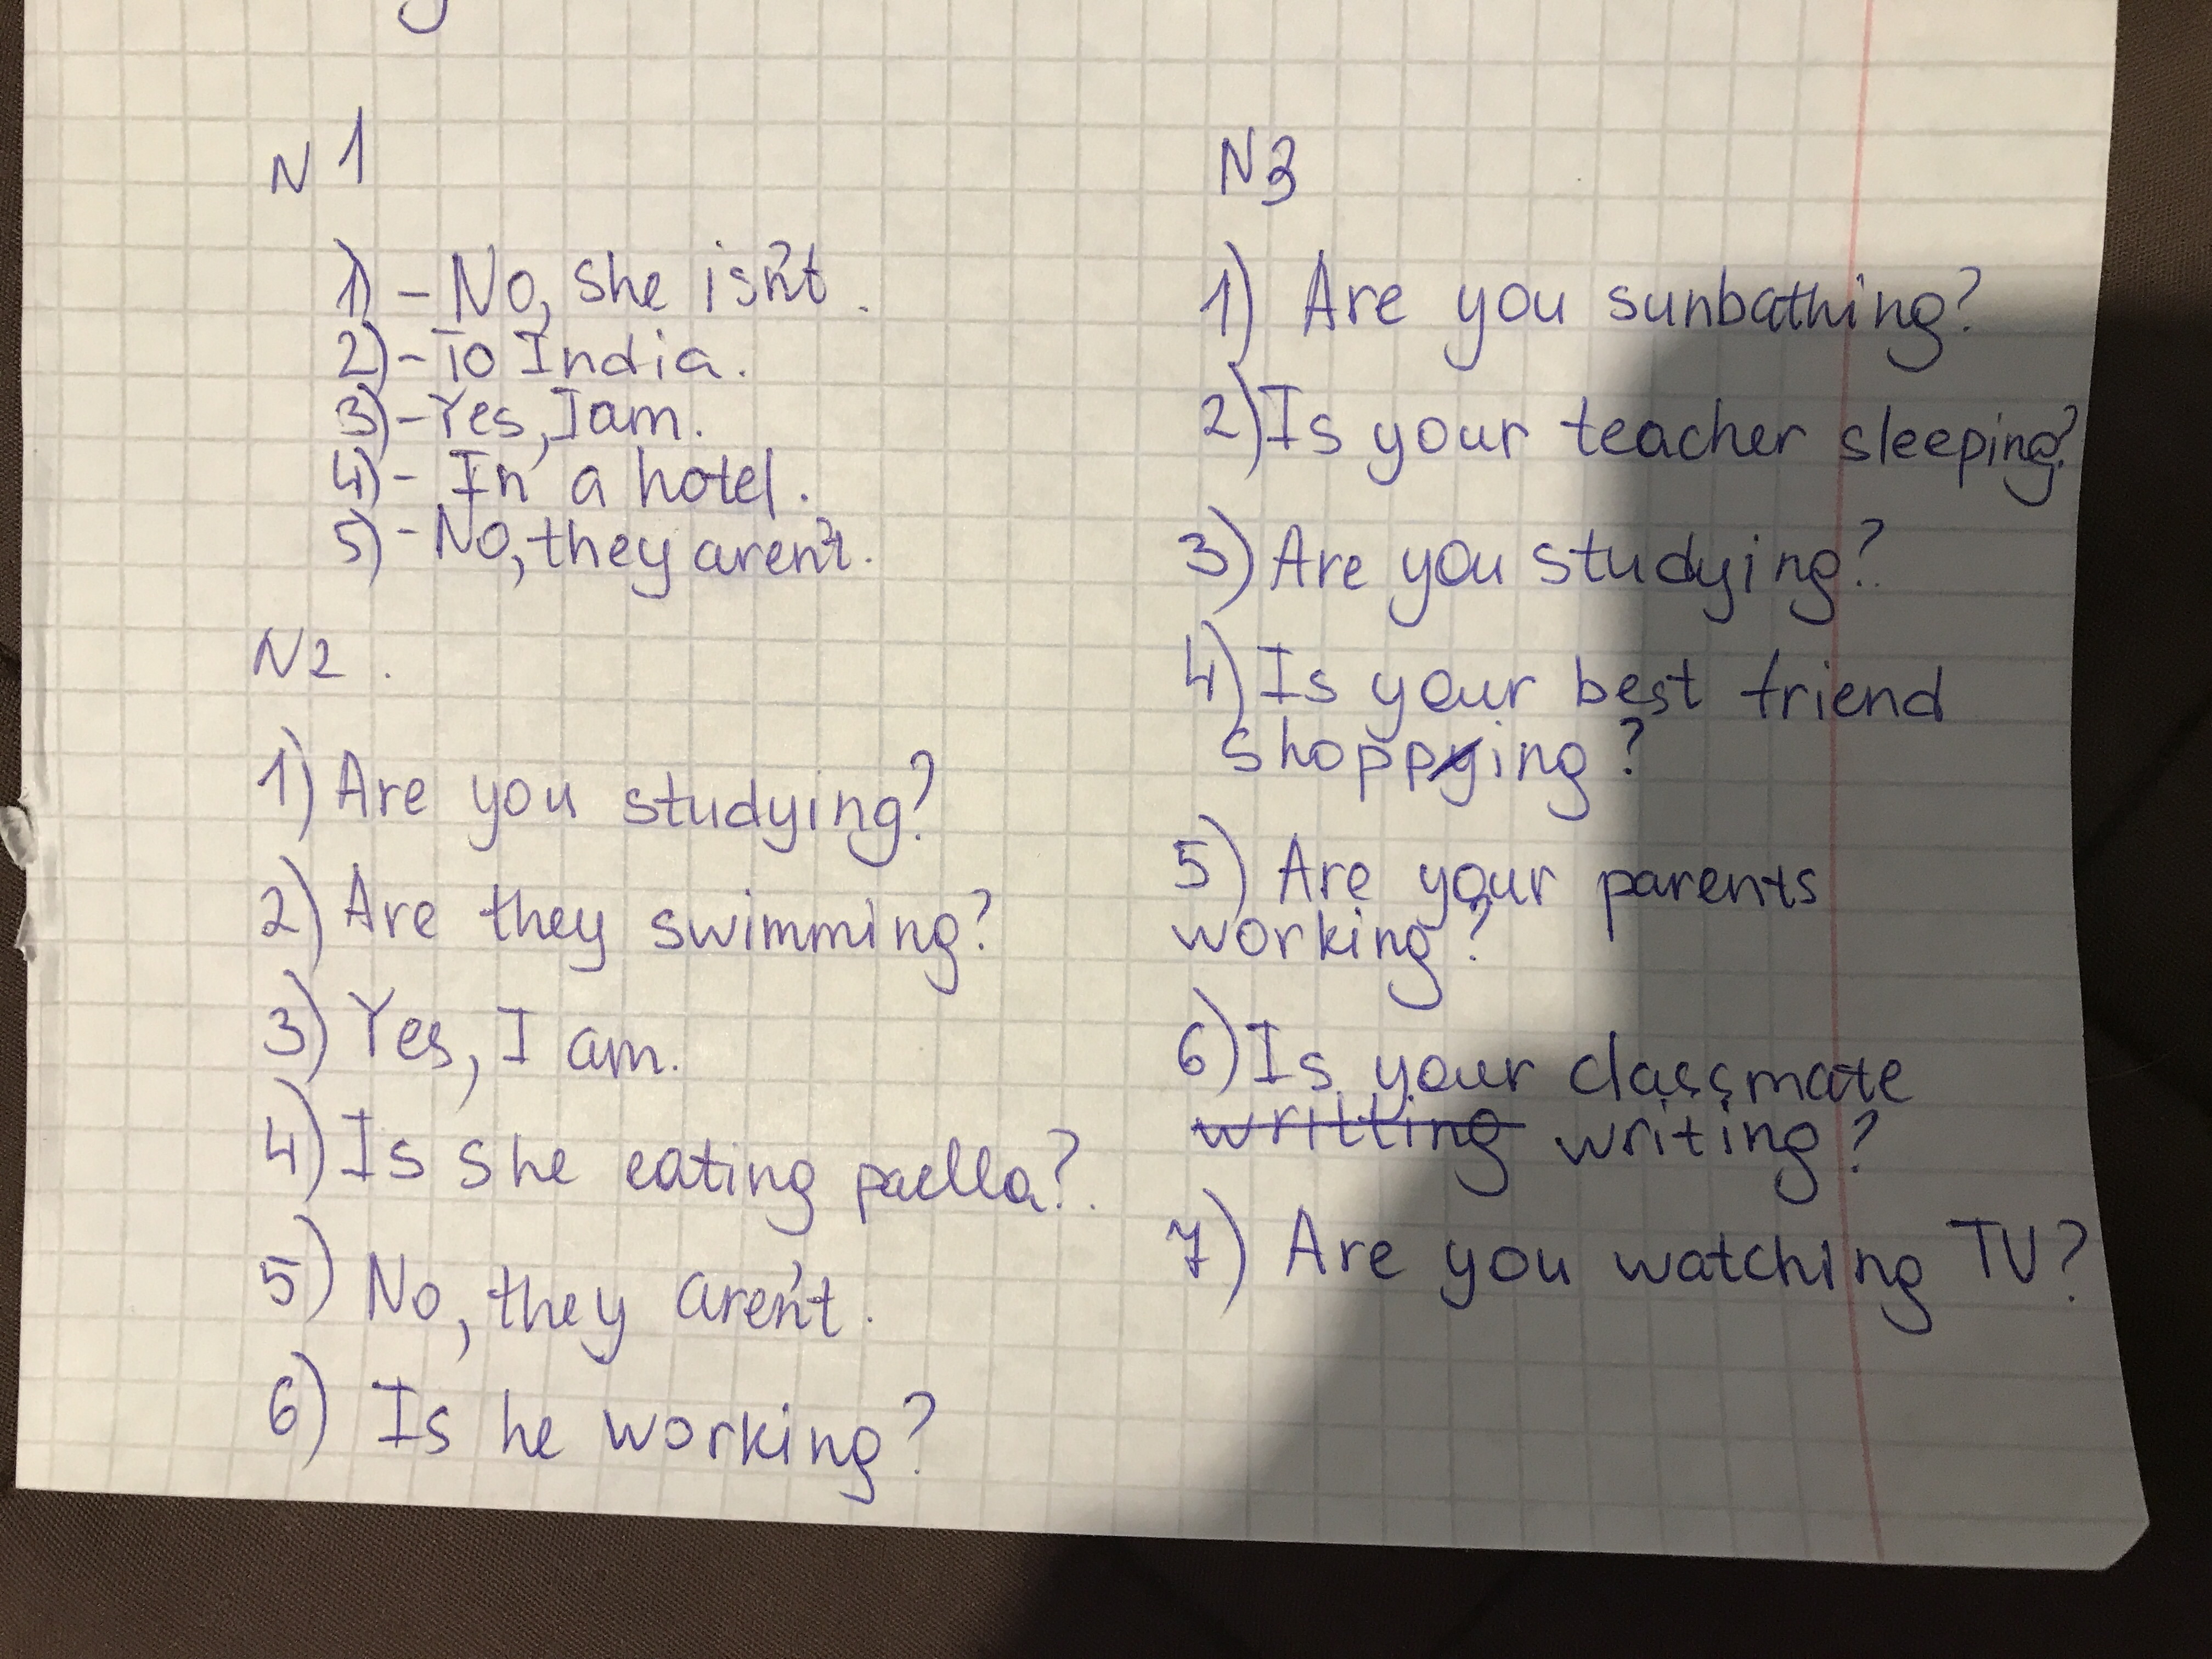 N 1
1) - No, she isn't.
2) - To India.
3) - Yes, I am.
4) - In a hotel.
5) - No, they aren't.
N2.
1) Are you studying?
2) Are they swimming?
3) Yes, I am.
4) Is she eating paella?.
5) No, they aren't.
6) Is he working?
N3
1) Are you sunbathing?
2) Is your teacher sleeping?
3) Are you studying?
4) Is your best friend
shopping?
5) Are your parents
working?
6) Is your classmate
writting writing?
7) Are you watching TV?